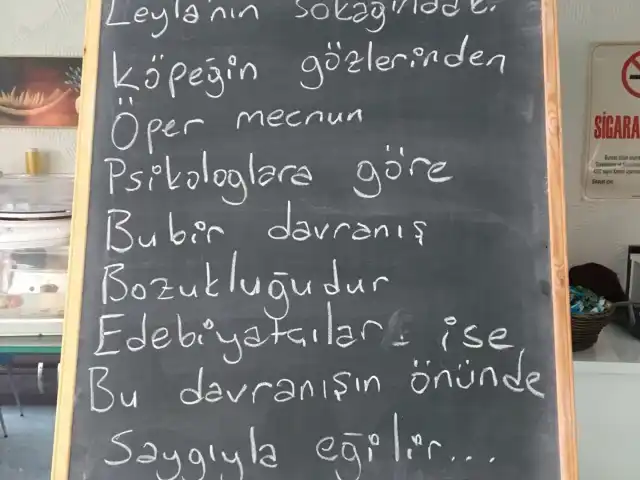 Leyla'nın sokağındaki
Köpeğin gözlerinden
Öper mecnun
Psikologlara göre
Bu bir davranış
Bozukluğudur
Edebiyatçılar ise
Bu davranışın önünde
Saygıyla eğilir...
SİGARA